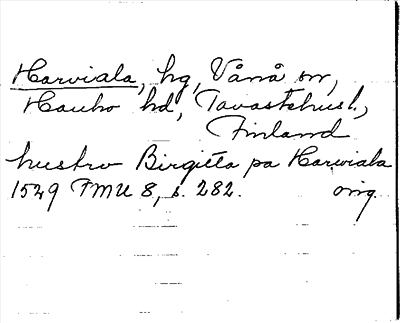 Harviala, hg, Vånå sn,
Hauho hd, Tavastehusl.,
Finland
hustru Birgitta pa Harviala
1529 FMU 8, s. 282. orig.